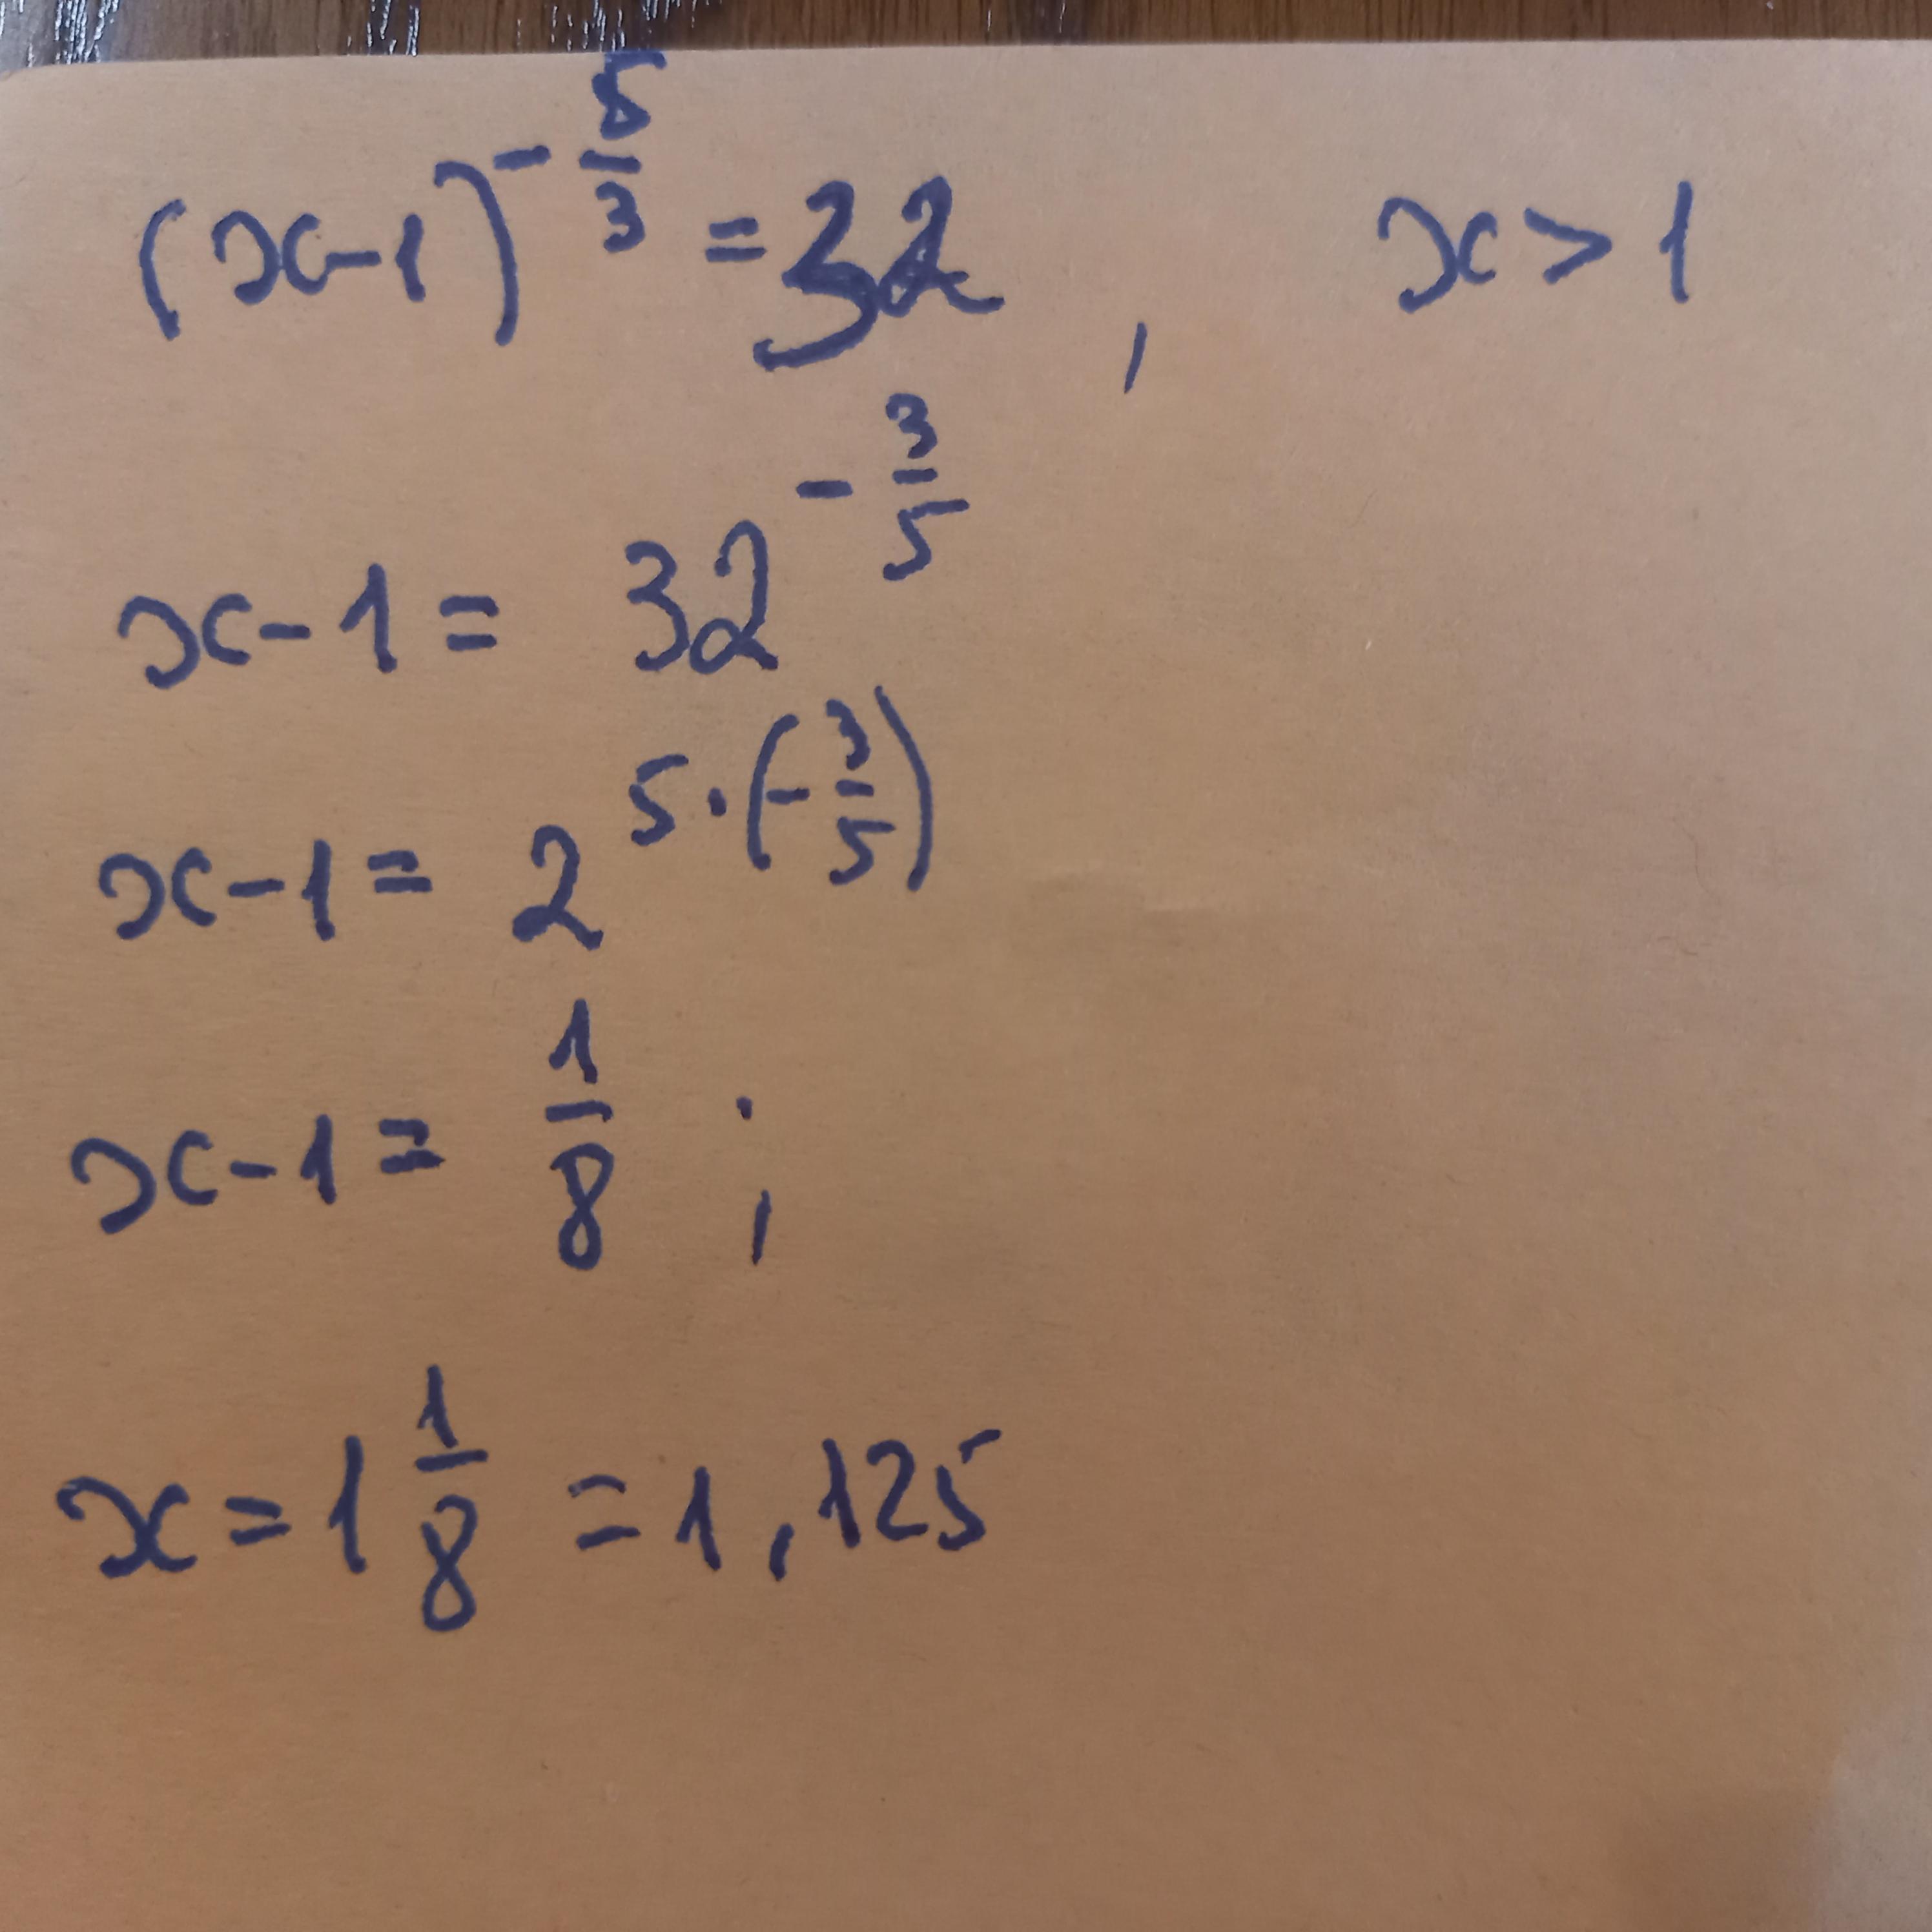 (x-1)^(-5/3) = 32, x > 1
x-1 = 32^(-3/5)
x-1 = 2^(5·(-3/5))
x-1 = 1/8 ;
x = 1 1/8 = 1,125